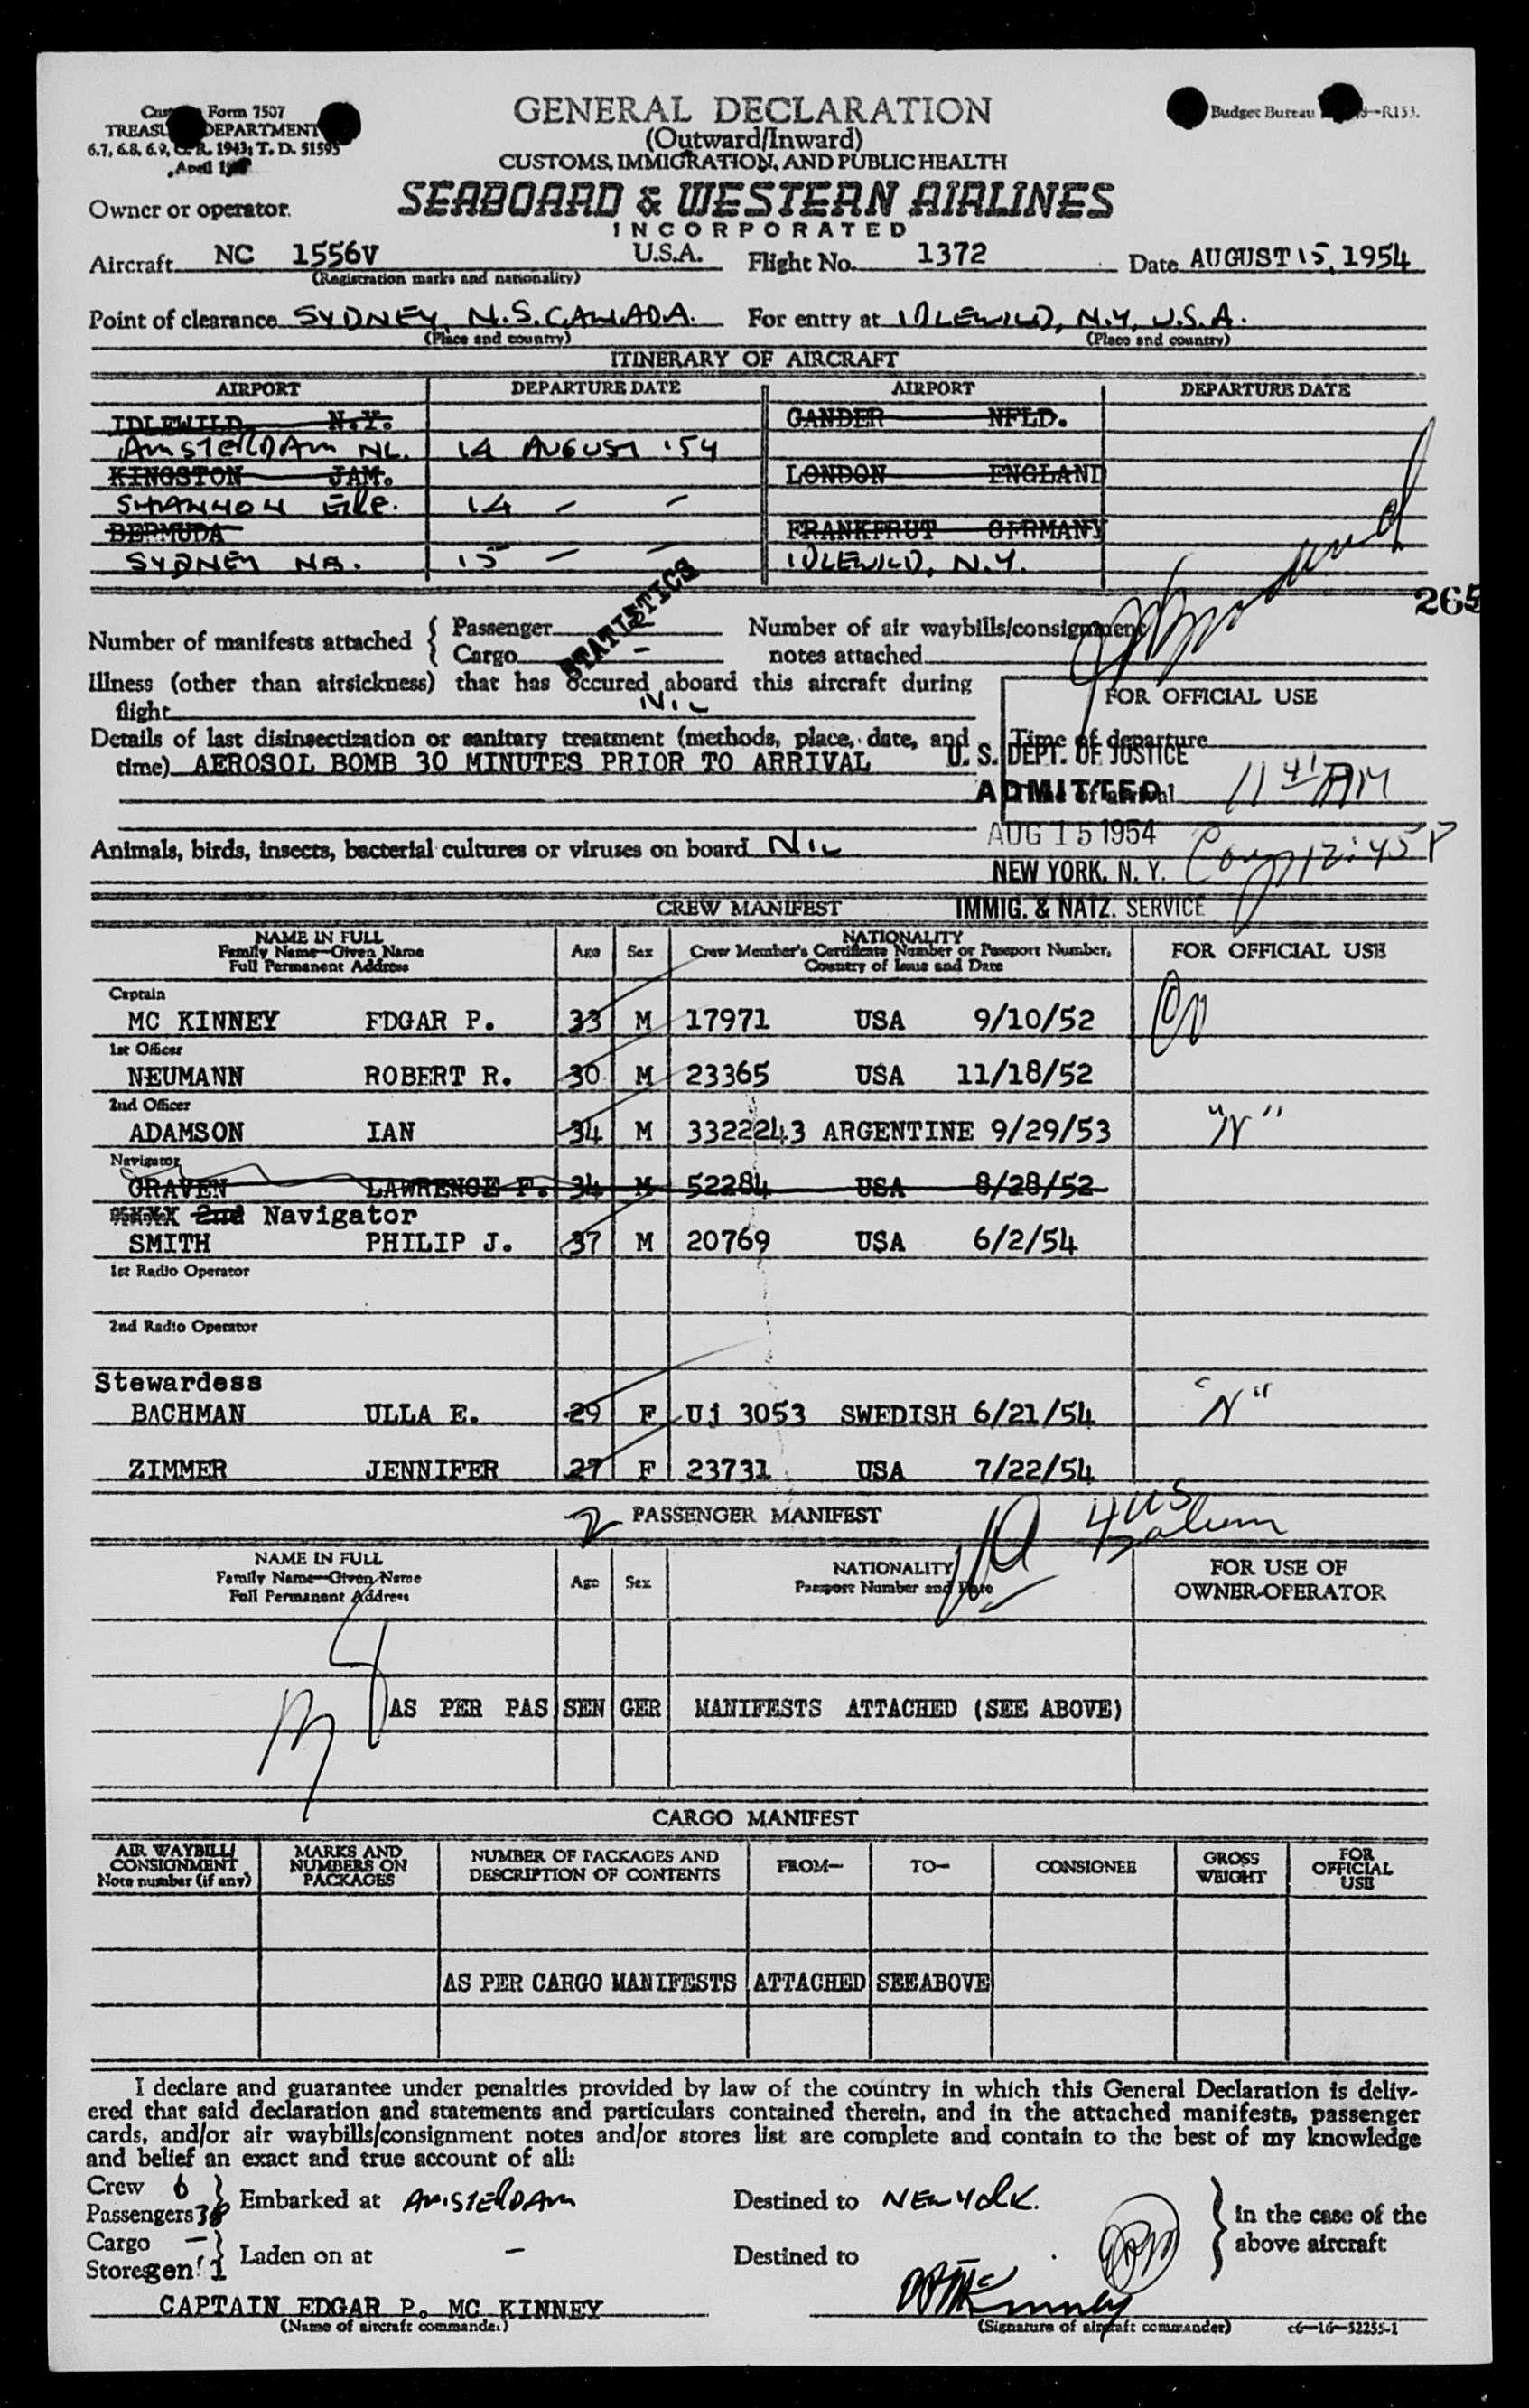 Form 7507
TREASU DEPARTMENT
6.7, 6.8, 6.9, C. R. 1943; T. D. 51595
April
GENERAL DECLARATION
(Outward/Inward)
CUSTOMS, IMMIGRATION, AND PUBLIC HEALTH
Budget Bureau —R153.
SEABOARD & WESTERN AIRLINES
INCORPORATED
Owner or operator.
Aircraft NC 1556V U.S.A. Flight No. 1372 Date AUGUST 15, 1954
(Registration marks and nationality)
Point of clearance SYDNEY, N.S. CANADA. For entry at IDLEWILD, N.Y, U.S.A.
(Place and country) (Place and country)
ITINERARY OF AIRCRAFT
AIRPORT DEPARTURE DATE AIRPORT DEPARTURE DATE
IDLEWILD, N.Y. GANDER NFLD.
AMSTERDAM NL. 14 AUGUST '54
KINGSTON JAM. LONDON ENGLAND
SHANNON EIRE. 14 - -
BERMUDA FRANKFRUT GERMANY
SYDNEY NS. 15 - - IDLEWILD, N.Y.
265
STATISTICS
Number of manifests attached { Passenger - Number of air waybills/consignment
Cargo - notes attached
Illness (other than airsickness) that has occured aboard this aircraft during
flight NIL
FOR OFFICIAL USE
Details of last disinsectization or sanitary treatment (methods, place, date, and
time) AEROSOL BOMB 30 MINUTES PRIOR TO ARRIVAL
Time of departure
U. S. DEPT. OF JUSTICE
Time of arrival 11 41 AM
ADMITTED
AUG 15 1954
12:45 P
Animals, birds, insects, bacterial cultures or viruses on board NIL
NEW YORK, N. Y.
IMMIG. & NATZ. SERVICE
CREW MANIFEST
NAME IN FULL
Family Name—Given Name
Full Permanent Address
Age Sex
NATIONALITY
Crew Member's Certificate Number or Passport Number,
Country of Issue and Date
FOR OFFICIAL USE
Captain
MC KINNEY EDGAR P. 33 M 17971 USA 9/10/52
1st Officer
NEUMANN ROBERT R. 30 M 23365 USA 11/18/52
2nd Officer
ADAMSON IAN 34 M 3322243 ARGENTINE 9/29/53 "N"
Navigator
GRAVEN LAWRENCE F. 34 M 52284 USA 8/28/52
2nd Navigator
SMITH PHILIP J. 37 M 20769 USA 6/2/54
1st Radio Operator
2nd Radio Operator
Stewardess
BACHMAN ULLA E. 29 F Uj 3053 SWEDISH 6/21/54 "N"
ZIMMER JENNIFER 27 F 23731 USA 7/22/54
2 PASSENGER MANIFEST 4 US
NAME IN FULL
Family Name—Given Name
Full Permanent Address
Age Sex
NATIONALITY
Passport Number and Date
FOR USE OF
OWNER-OPERATOR
AS PER PASSENGER MANIFESTS ATTACHED (SEE ABOVE)
CARGO MANIFEST
AIR WAYBILL/
CONSIGNMENT
Note number (if any)
MARKS AND
NUMBERS ON
PACKAGES
NUMBER OF PACKAGES AND
DESCRIPTION OF CONTENTS
FROM— TO— CONSIGNEE
GROSS
WEIGHT
FOR
OFFICIAL
USE
AS PER CARGO MANIFESTS ATTACHED SEE ABOVE
I declare and guarantee under penalties provided by law of the country in which this General Declaration is deliv-
ered that said declaration and statements and particulars contained therein, and in the attached manifests, passenger
cards, and/or air waybills/consignment notes and/or stores list are complete and contain to the best of my knowledge
and belief an exact and true account of all:
Crew 6
Passengers 38 } Embarked at AMSTERDAM Destined to NEW YORK. } In the case of the
Cargo - above aircraft
Stores gen'l } Laden on at - Destined to -
CAPTAIN EDGAR P. MC KINNEY
(Name of aircraft commander) (Signature of aircraft commander) c6—16—52255-1